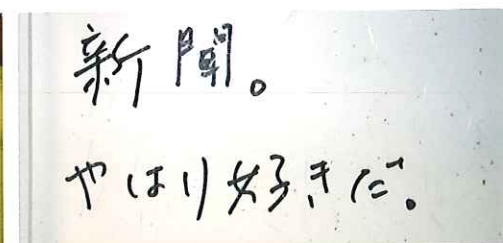 新聞。
やはり好きだ。